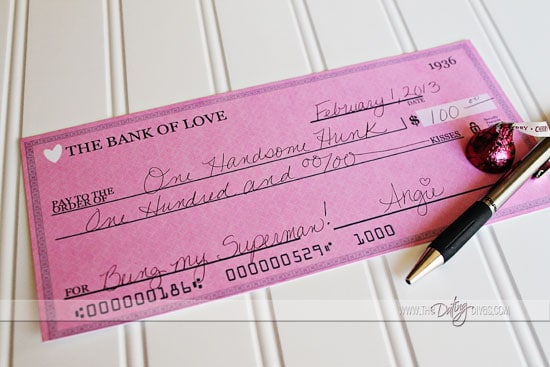 1936
February 1, 2013
DATE
THE BANK OF LOVE
PAY TO THE
ORDER OF
One Handsome Hunk
$ 100
One Hundred and 00/100
KISSES
FOR
Being my Superman!
Angie
000000186 000000529 1000
WWW.THE Dating DIVAS.COM